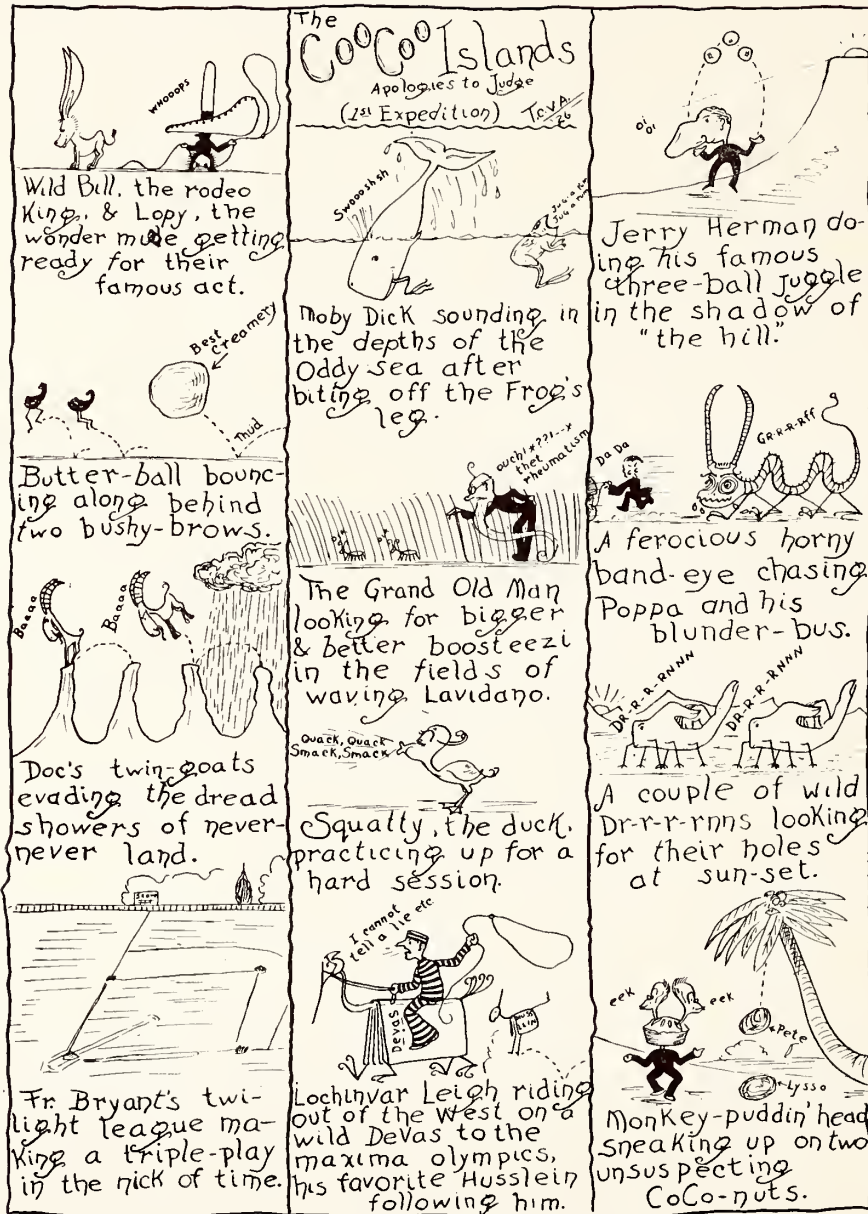 WHOOOPS
Wild Bill, the rodeo
King, & Lopy, the
wonder mule getting
ready for their
famous act.
Best
Creamery
Thud
Butter-ball bounc-
ing along behind
two bushy-brows.
Baaaa
Baaaa
Doc's twin-goats
evading the dread
showers of never-
never land.
Fr. Bryant's twi-
light league ma-
king a triple-play
in the nick of time.
The
CooCoo Islands
Apologies to Judge
(1st Expedition)
T.C.V.A.
26
Swooo-sh sh
Moby Dick sounding in
the depths of the
Oddy sea after
biting off the Frog's
leg.
ouch!*??!--*
thet
rheumatism
The Grand Old Man
looking for bigger
& better boosteezi
in the fields of
waving Lavidano.
Quack, Quack
Smack, Smack
Squatty, the duck,
practicing up for a
hard session.
I cannot
tell a lie etc
DeVas
HUSS
LEIN
Lochinvar Leigh riding
out of the West on a
wild DeVas to the
maxima olympics,
his favorite Husslein
following him.
oi
oi
Jerry Herman do-
ing his famous
three-ball Juggle
in the shadow of
"the hill."
Da Da
GR-R-R-Rff
A ferocious horny
band-eye chasing
Poppa and his
blunder-bus.
DR-R-R-RNNN
DR-R-R-RNNN
A couple of wild
Dr-r-r-rnns looking
for their holes
at sun-set.
eek
eek
Pete
Lysso
Monkey-puddin' head
sneaking up on two
unsuspecting
CoCo-nuts.